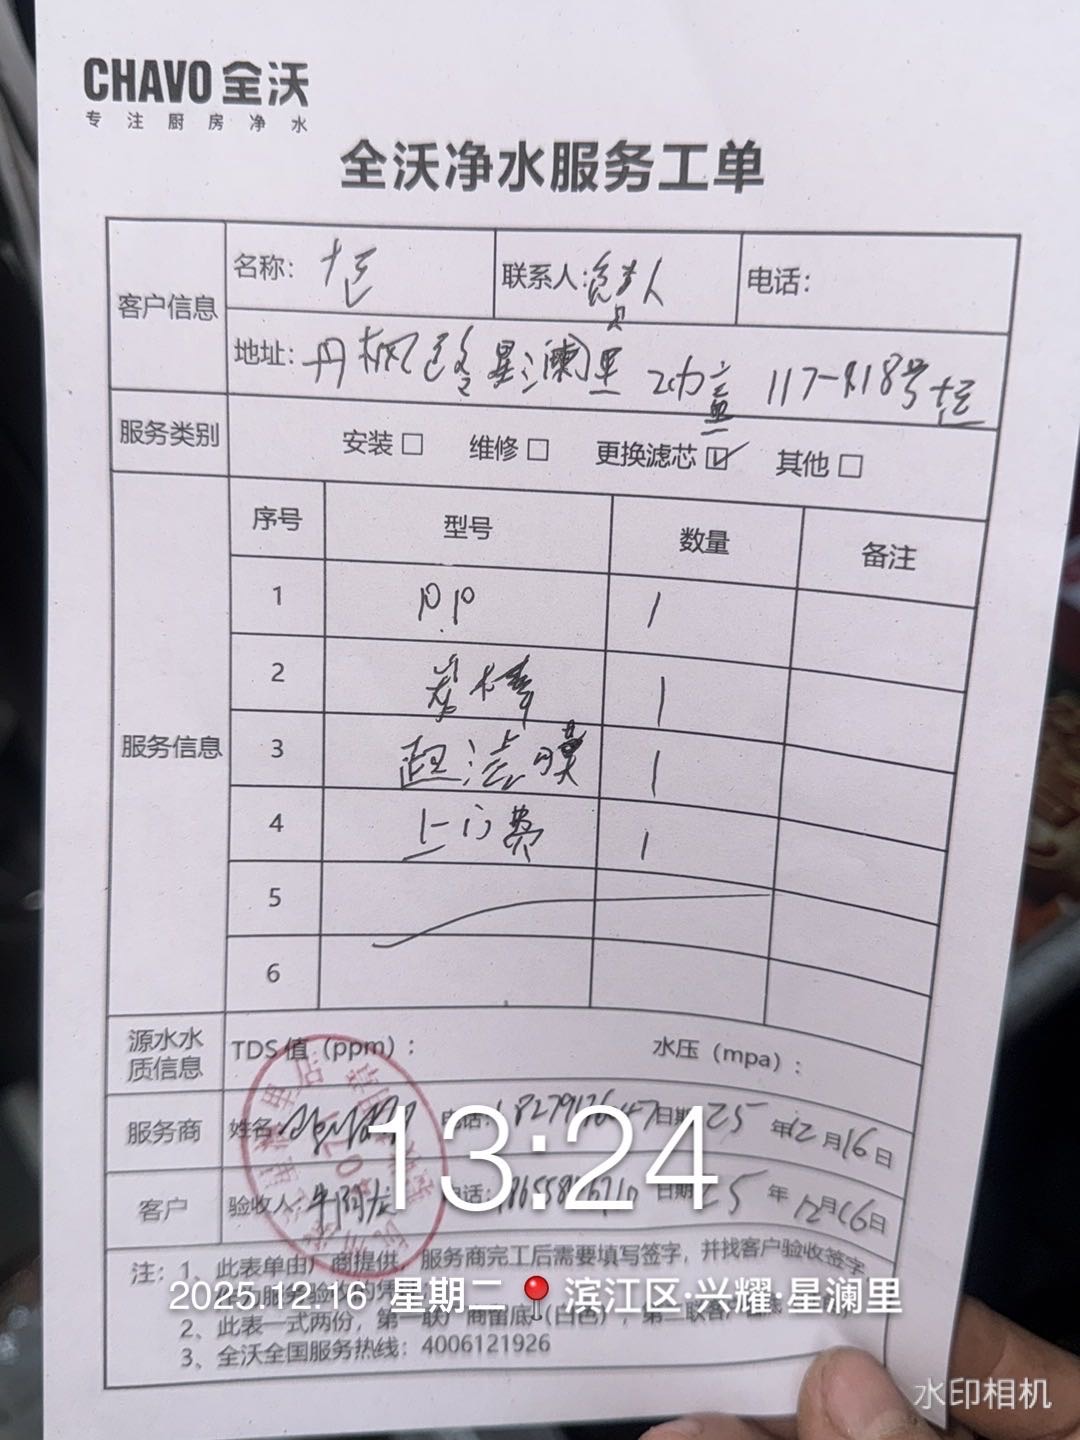 CHAVO 全沃
专注厨房净水
全沃净水服务工单
客户信息
名称：
联系人：负责人
电话：
地址：丹枫路星澜里 117-118号
服务类别
安装□ 维修□ 更换滤芯☑ 其他□
服务信息
序号 型号 数量 备注
1 PP 1
2 炭棒 1
3 超滤膜 1
4 上门费 1
5
6
源水水质信息
TDS 值（ppm）： 水压（mpa）：
服务商 姓名： 电话： 日期：25 年 12 月 16 日
客户 验收人： 电话： 日期：25 年 12 月 16 日
注：1、此表单由厂商提供，服务商完工后需要填写签字，并找客户验收签字
2、此表一式两份，第一联厂商留底（白色），第二联客户
3、全沃全国服务热线：4006121926
13:24
2025.12.16 星期二 滨江区·兴耀·星澜里
水印相机